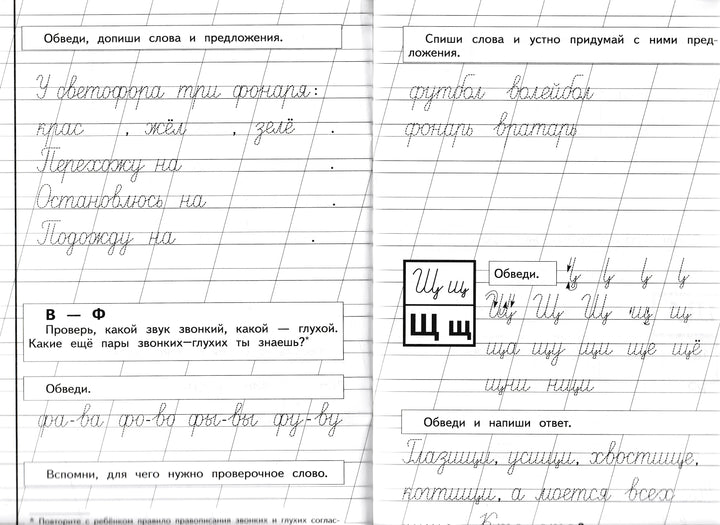 Обведи, допиши слова и предложения.
У светофора три фонаря:
крас , жёл , зелё .
Перехожу на .
Остановлюсь на .
Подожду на .
В — Ф
Проверь, какой звук звонкий, какой — глухой.
Какие ещё пары звонких—глухих ты знаешь?*
Обведи.
фа-ва фо-во фы-вы фу-ву
Вспомни, для чего нужно проверочное слово.
* Повторите с ребёнком правило правописания звонких и глухих соглас-
Спиши слова и устно придумай с ними пред-
ложения.
футбол волейбол
фонарь вратарь
Щ щ
Щ щ
Обведи.
Щ Щ Щ щ щ
ща щу щи ще щё
щни ници
Обведи и напиши ответ.
Глазищи, усищи, хвостище,
когтищи, а моется всех